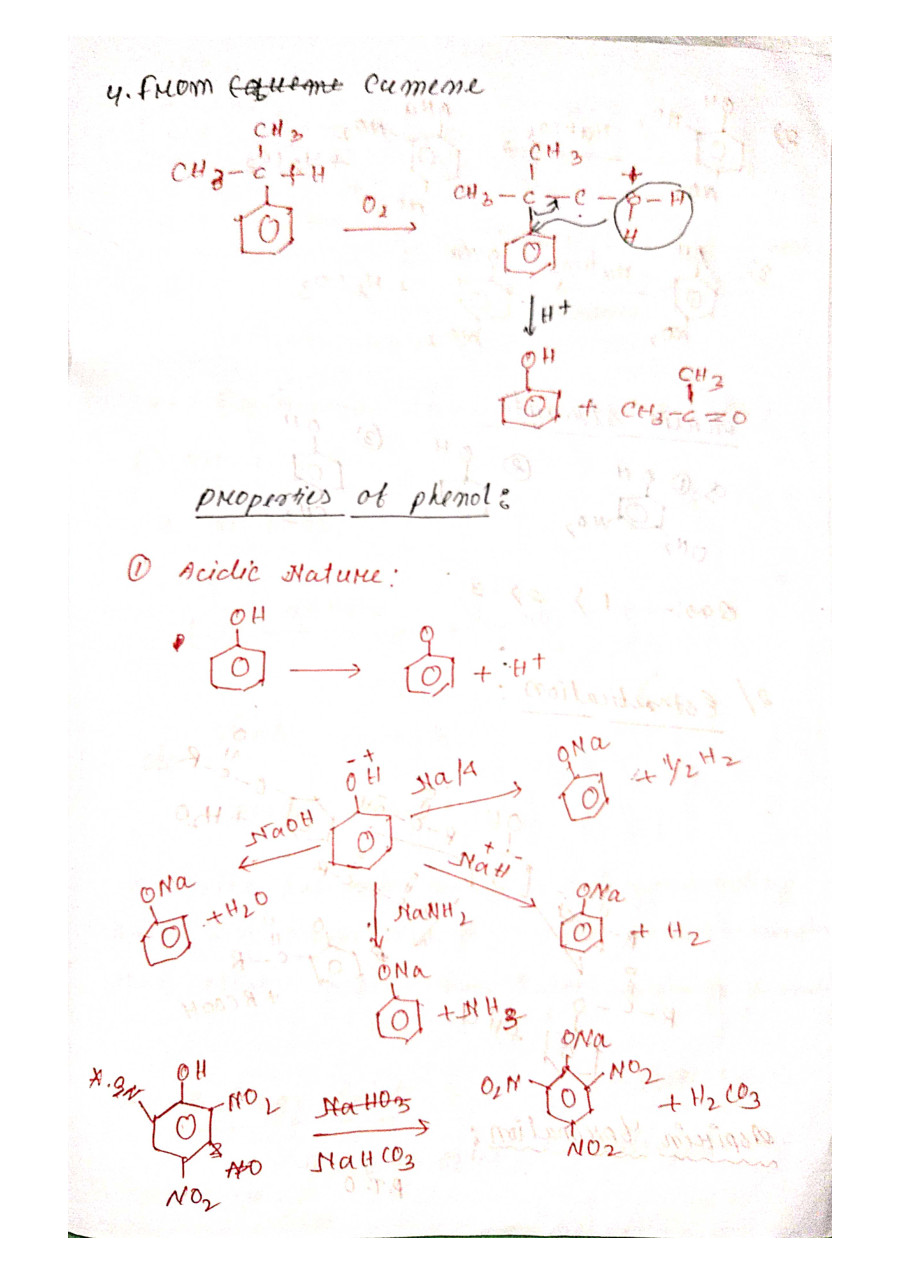 4. From Cumene
CH3
CH3-C+H
O2
CH3
CH3-C-C-O-H
+
H
H+
OH
CH3
+ CH3-C=O
Properties of phenol:
① Acidic Nature:
OH
O
+ H+
- +
OH
Na/Δ
ONa
+ 1/2 H2
NaOH
ONa
+H2O
+ -
NaH
ONa
+ H2
NaNH2
ONa
+NH3
OH
NO2
NO2
NaHO3
NaHCO3
ONa
O2N
NO2
NO2
+ H2CO3